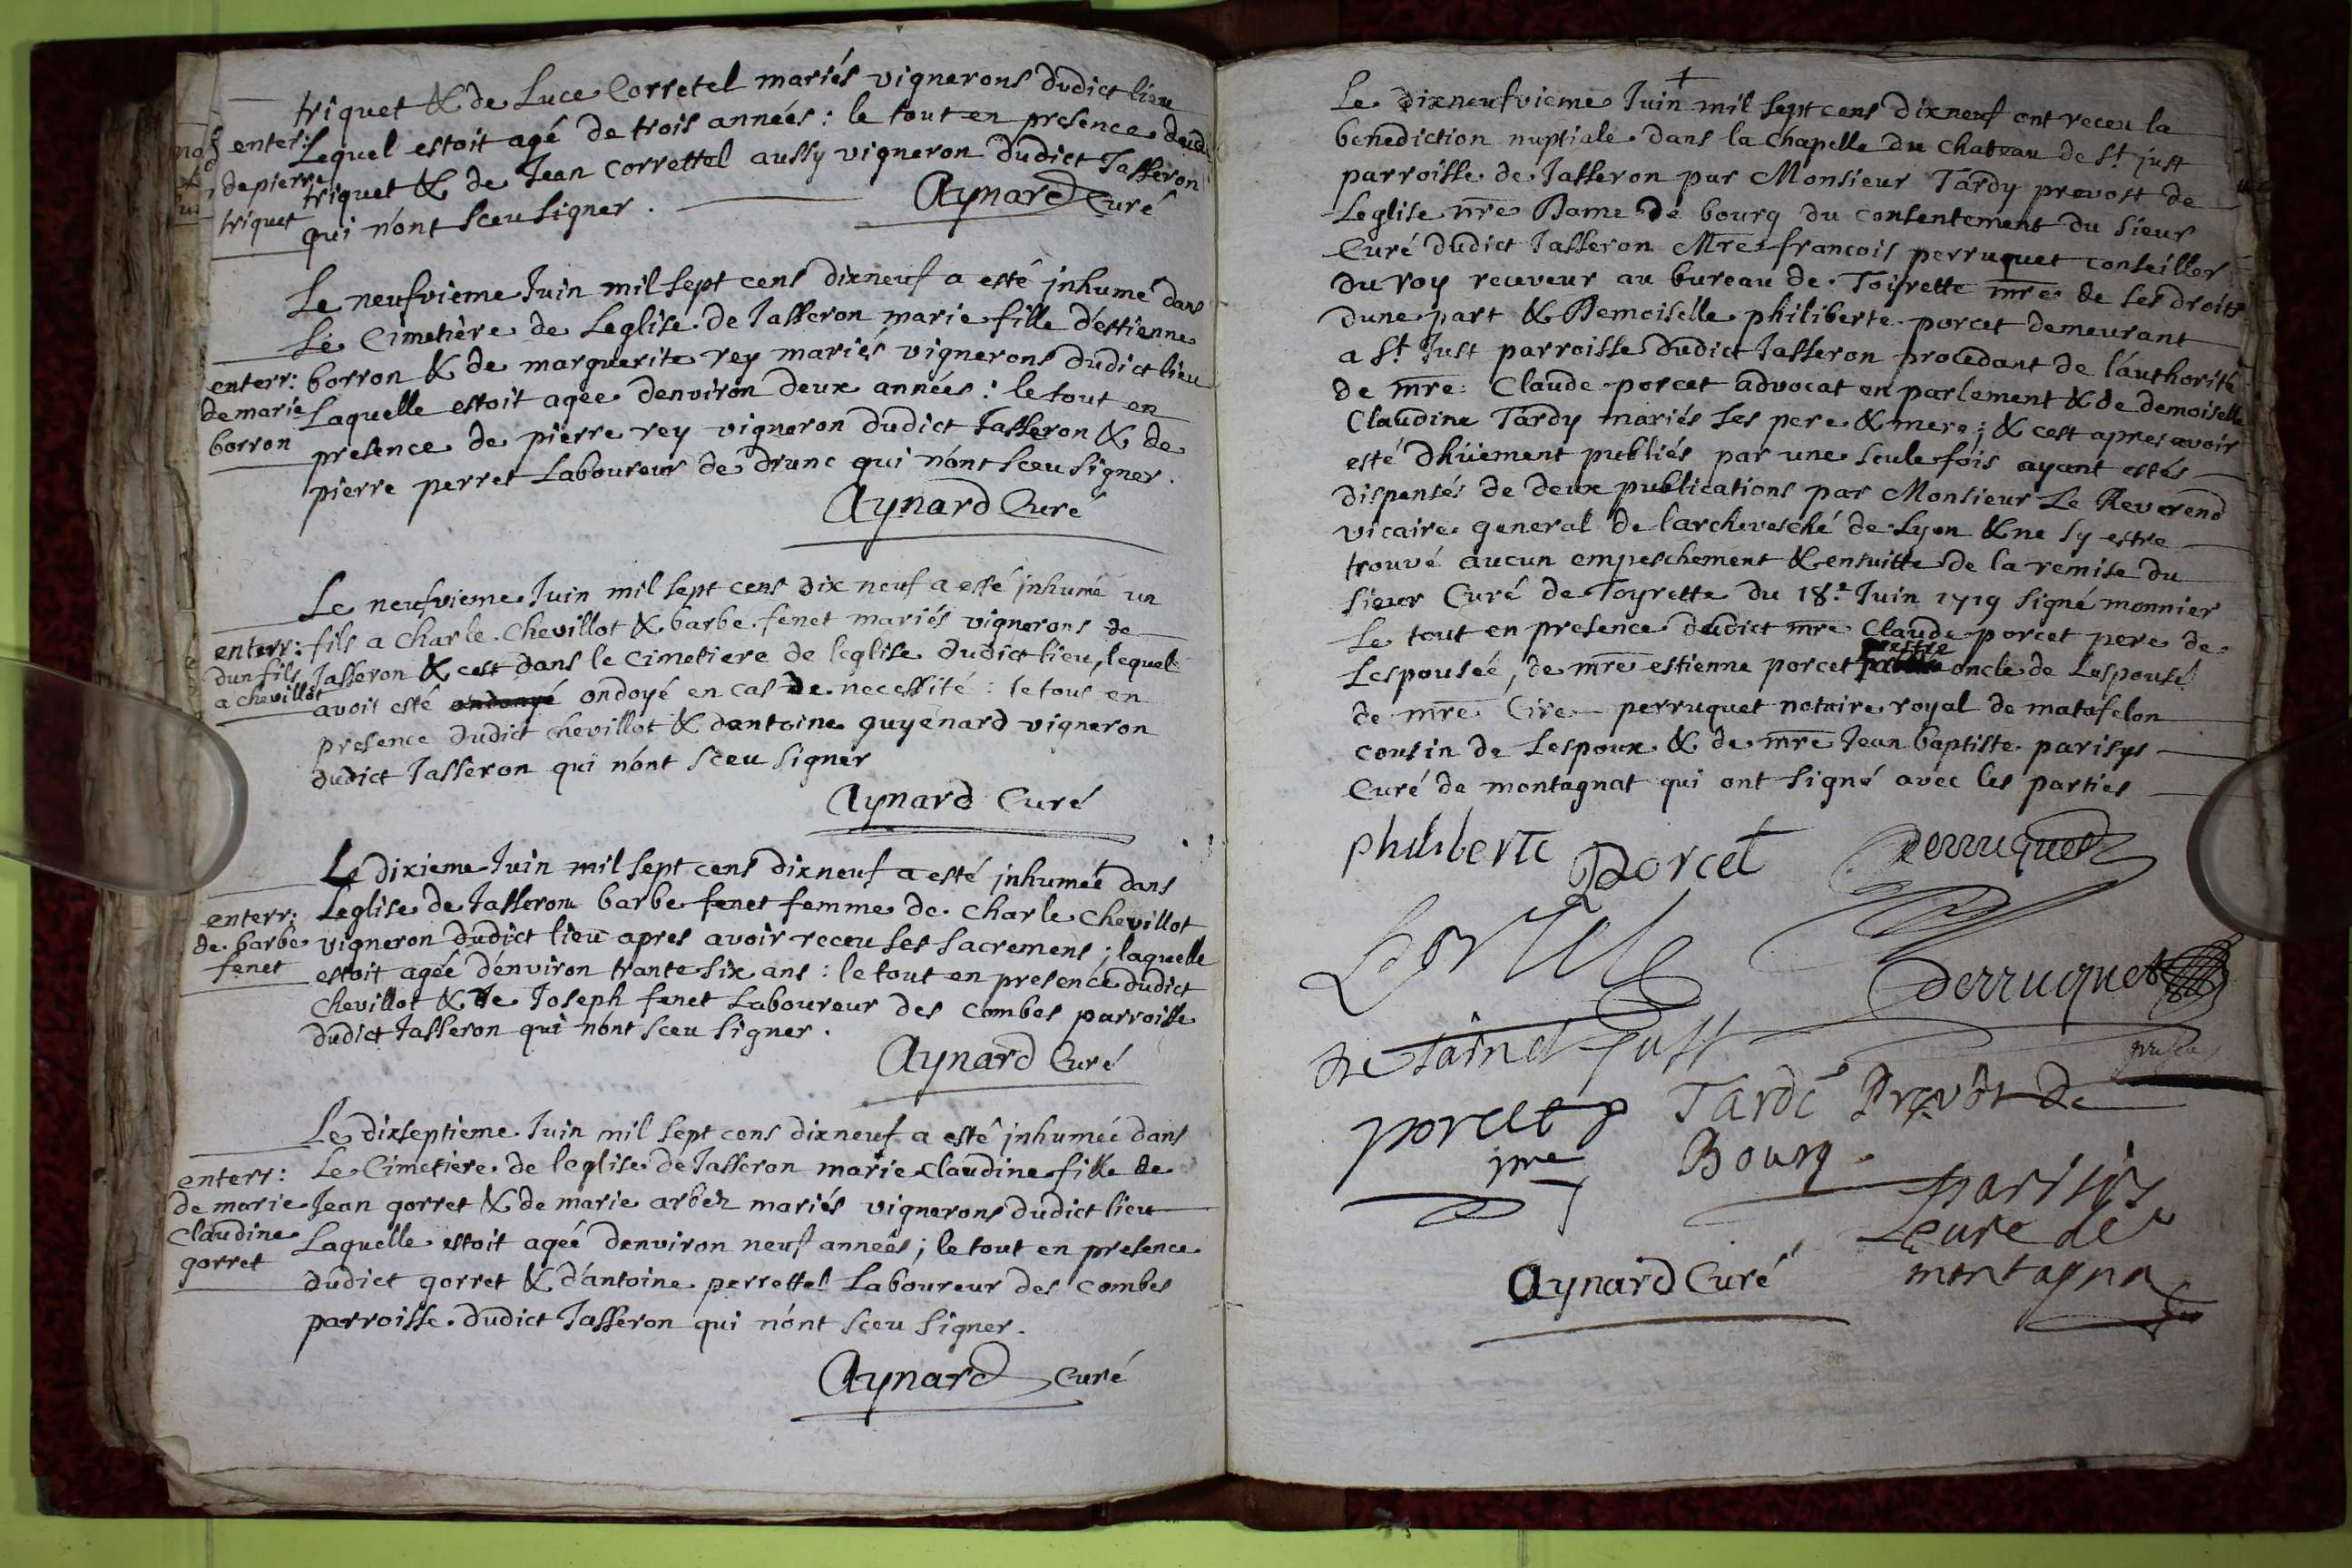 triquet & de Luce Corretel mariés vignerons dudict lieu
enterr:
de pierre
triquet
Lequel estoit agé de trois années : le tout en presence dudi
triquet & de Jean Correttel aussy vigneron dudict Jasseron
qui n'ont sceu signer .
Aynard Curé
Le neufvieme Juin mil sept cens dixneuf a esté inhumé dans
Le Cimetière de Leglise de Jasseron marie fille d'estienne
enterr:
de marie
borron
borron & de marguerite rey mariés vignerons dudict lieu
Laquelle estoit agée denviron deux années : le tout en
presence de pierre rey vigneron dudict Jasseron & de
pierre perret Laboureur de drunc qui n'ont sceu signer .
Aynard Curé
Le neufvieme Juin mil sept cens dix neuf a esté inhumé un
enterr:
dun fils
a chevillot
fils a Charle Chevillot & barbe fenet mariés vignerons de
Jasseron & cest dans le Cimetiere de leglise dudict lieu, lequel
avoit esté ondoyé en cas de necessité : le tout en
presence dudict chevillot & dantoine guyénard vigneron
dudict Jasseron qui n'ont sceu signer
Aynard Curé
Le dixieme Juin mil sept cens dixneuf a esté inhumée dans
enterr:
de barbe
fenet
Leglise de Jasseron barbe fenet femme de Charle Chevillot
vigneron dudict lieu apres avoir receu ses sacremens ; laquelle
estoit agée d'environ trante six ans : le tout en presence dudict
Chevillot & de Joseph fenet Laboureur des Combes parroisse
dudict Jasseron qui n'ont sceu signer .
Aynard Curé
Le dixseptieme Juin mil sept cens dixneuf a esté inhumée dans
enterr:
de marie
Claudine
gorret
Le Cimetiere de leglise de Jasseron marie Claudine fille de
Jean gorret & de marie arbez mariés vignerons dudict lieu
Laquelle estoit agée denviron neuf années ; le tout en presence
dudict gorret & d'antoine perrettel Laboureur des Combes
parroisse dudict Jasseron qui n'ont sceu signer .
Aynard Curé
Le dixneufvieme Juin mil sept cens dixneuf ont receu la
benediction nuptiale dans la Chapelle du Chateau de St just
parroisse de Jasseron par Monsieur Tardy prevost de
Leglise nre Dame de bourg du consentement du sieur
Curé dudict Jasseron Mre francois perruquet conseiller
du roy receveur au bureau de Toirette mre de ses droits
dune part & Demoiselle philiberte porcet demeurant
a St Just parroisse dudict Jasseron procedant de l'authorité
de mre Claude porcet advocat en parlement & de demoiselle
Claudine Tardy mariés ses pere & mere ; & cest apres avoir
esté dhüement publiés par une seule fois ayant estés
dispensés de deux publications par Monsieur Le Reverend
vicaire general de l'archevesché de Lyon & ne sy estre
trouvé aucun empeschement & ensuitte de la remise du
sieur Curé de Toyrette du 18e Juin 1719 signé monnier
Le tout en presence dudict mre Claude porcet pere de
Lespousée, de mre estienne porcet prestre oncle de Lespousé
de mre Cire perruquet notaire royal de matafelon
cousin de Lespoux & de mre Jean baptiste parisys
Curé de montagnat qui ont signé avec les parties
philiberte Porcet
Perruquet
Perruquet
de Sainct Just
porcet p
pre
Tardi Prevôt de
Bourg .
parisis
Cure de
montagna
Aynard Curé